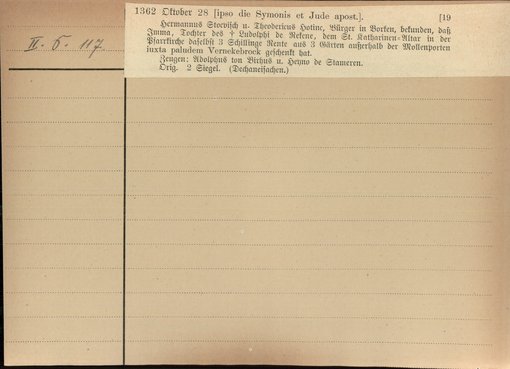 II. 5. 117.
1362 Oktober 28 [ipso die Symonis et Jude apost.]. [19
Hermannus Stoevisch u. Theodericus Hotinc, Bürger in Borken, bekunden, daß
Imma, Tochter des † Ludolphi de Rekene, dem St. Katharinen-Altar in der
Pfarrkirche daselbst 3 Schillinge Rente aus 3 Gärten außerhalb der Mollenporten
iuxta paludem Vernekebrock geschenkt hat.
Zeugen: Adolphus ton Virhus u. Heyno de Stameren.
Orig. 2 Siegel. (Dechaneisachen.)